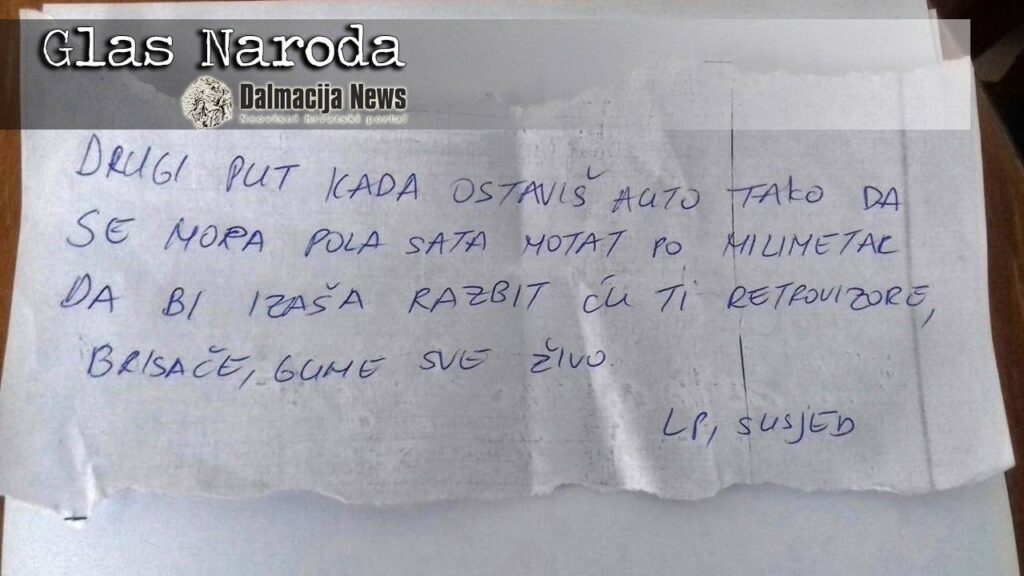 Glas Naroda
Dalmacija News
Neovisni hrvatski portal
DRUGI PUT KADA OSTAVIŠ AUTO TAKO DA
SE MORA POLA SATA MOTAT PO MILIMETAR
DA BI IZAŠA RAZBIT ĆU TI RETROVIZORE,
BRISAČE, GUME SVE ŽIVO
LP, SUSJED